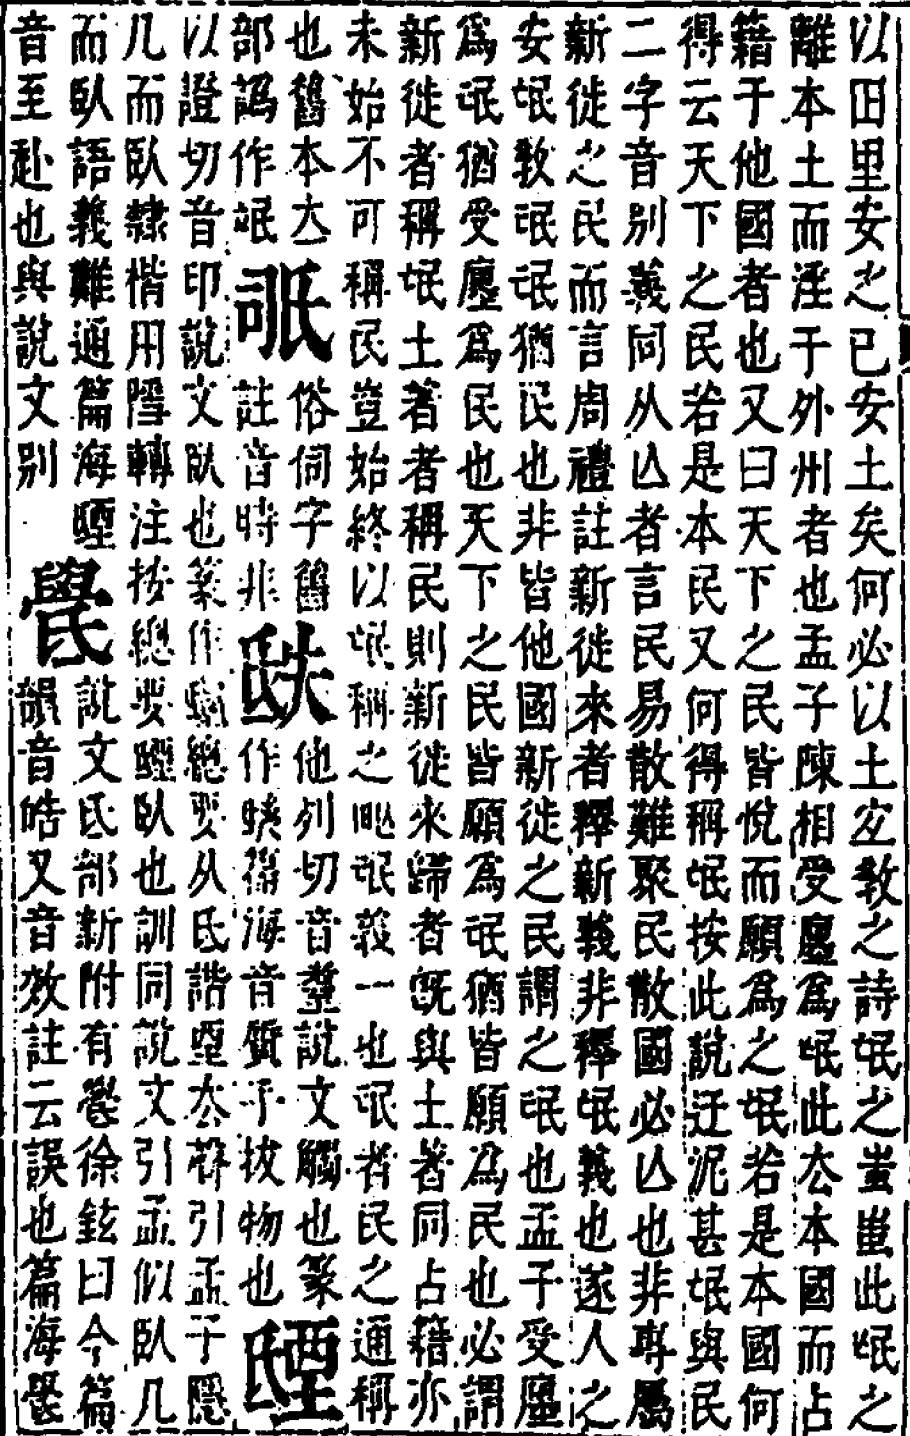 以田里安之已安土矣何必以土宐敎之詩氓之蚩蚩此氓之
離本土而淫于外州者也孟子陳相受廛爲氓此厺本國而占
籍于他國者也又曰天下之民皆悅而願爲之氓若是本國何
得云天下之民若是本民又何得稱氓按此說迂泥甚氓與民
二字音別義同从亾者言民易散難聚民散國必亾也非專屬
新徙之民而言周禮註新徙來者釋新義非釋氓義也遂人之
安氓敎氓氓猶民也非皆他國新徙之民謂之氓也孟子受廛
爲氓猶受廛爲民也天下之民皆願爲氓猶皆願爲民也必謂
新徙者稱氓土著者稱民則新徙來歸者旣與土著同占籍亦
未始不可稱民豈始終以氓稱之甿氓義一也氓者民之通稱
也舊本厺
部譌作氓
䛄
俗伺字舊
註音時非
𣱈
他列切音𥂕說文觸也篆
作海音質予拔物也
𣱐
以證切音印說文臥也篆作總要从氏諧垔厺聲引孟子隱
几而臥隸楷用隱轉注按總要臥也訓同說文引孟似臥几
而臥語義難通篇海說文氏部新附有徐鉉曰今篇
音至赴也與說文別
韻音皓又音效註云誤也篇海